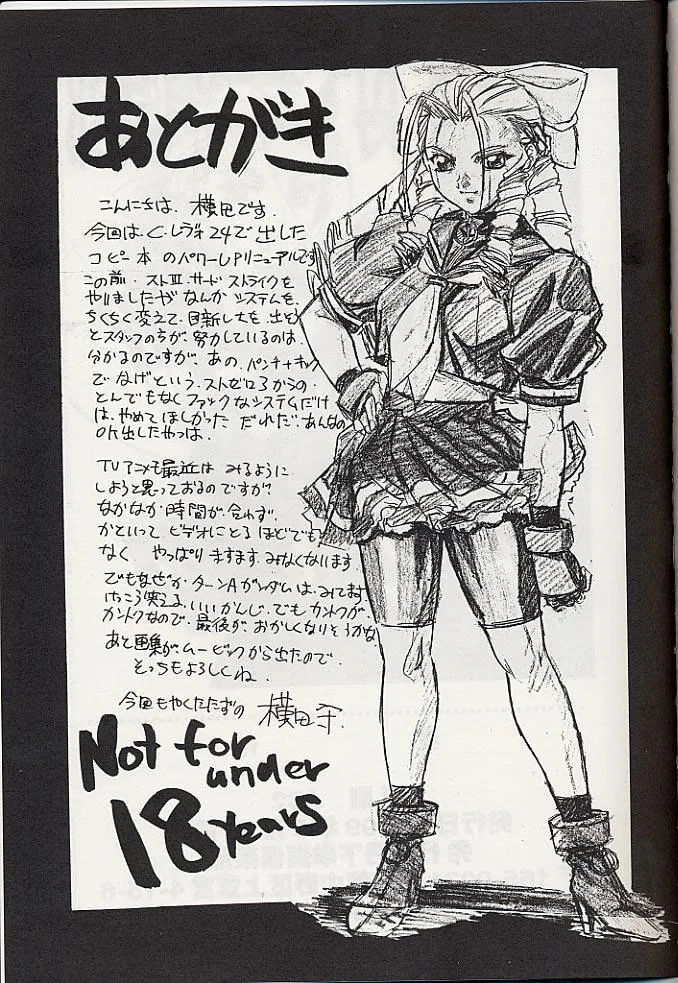 あとがき
こんにちは、横田です。
今回は、C.レヴォ24で出した
コピー本のパワーUPリニューアルです
この前・ストⅢ.サードストライクを
やりましたがなんかシステムを、
ちくちく変えて、目新しさを、出そう
とスタッフの方が、努力しているのは、
分かるのですが、あの、パンチ+キック
でなげという、ストゼロ3からの、
とんでもなくファックなシステムだけ
は、やめてほしかった だれだ、あんなの
OK出したやつは、
TVアニメも最近は みるように
しようと思っておるのですが、
なかなか時間が合わず、
かといって ビデオにとるほどでも
なく やっぱり ますます、みなくなります
でもなぜか ターンAガンダムは、みてます
けっこう笑える、いいかんじ、でも カントクが、
カントクなので、最後が、おかしくなりそうかな
あと画集が、ムービックから出たので、
そっちもよろしくね、
今回もやくたたずの 横田守.
Not for
under
18 years